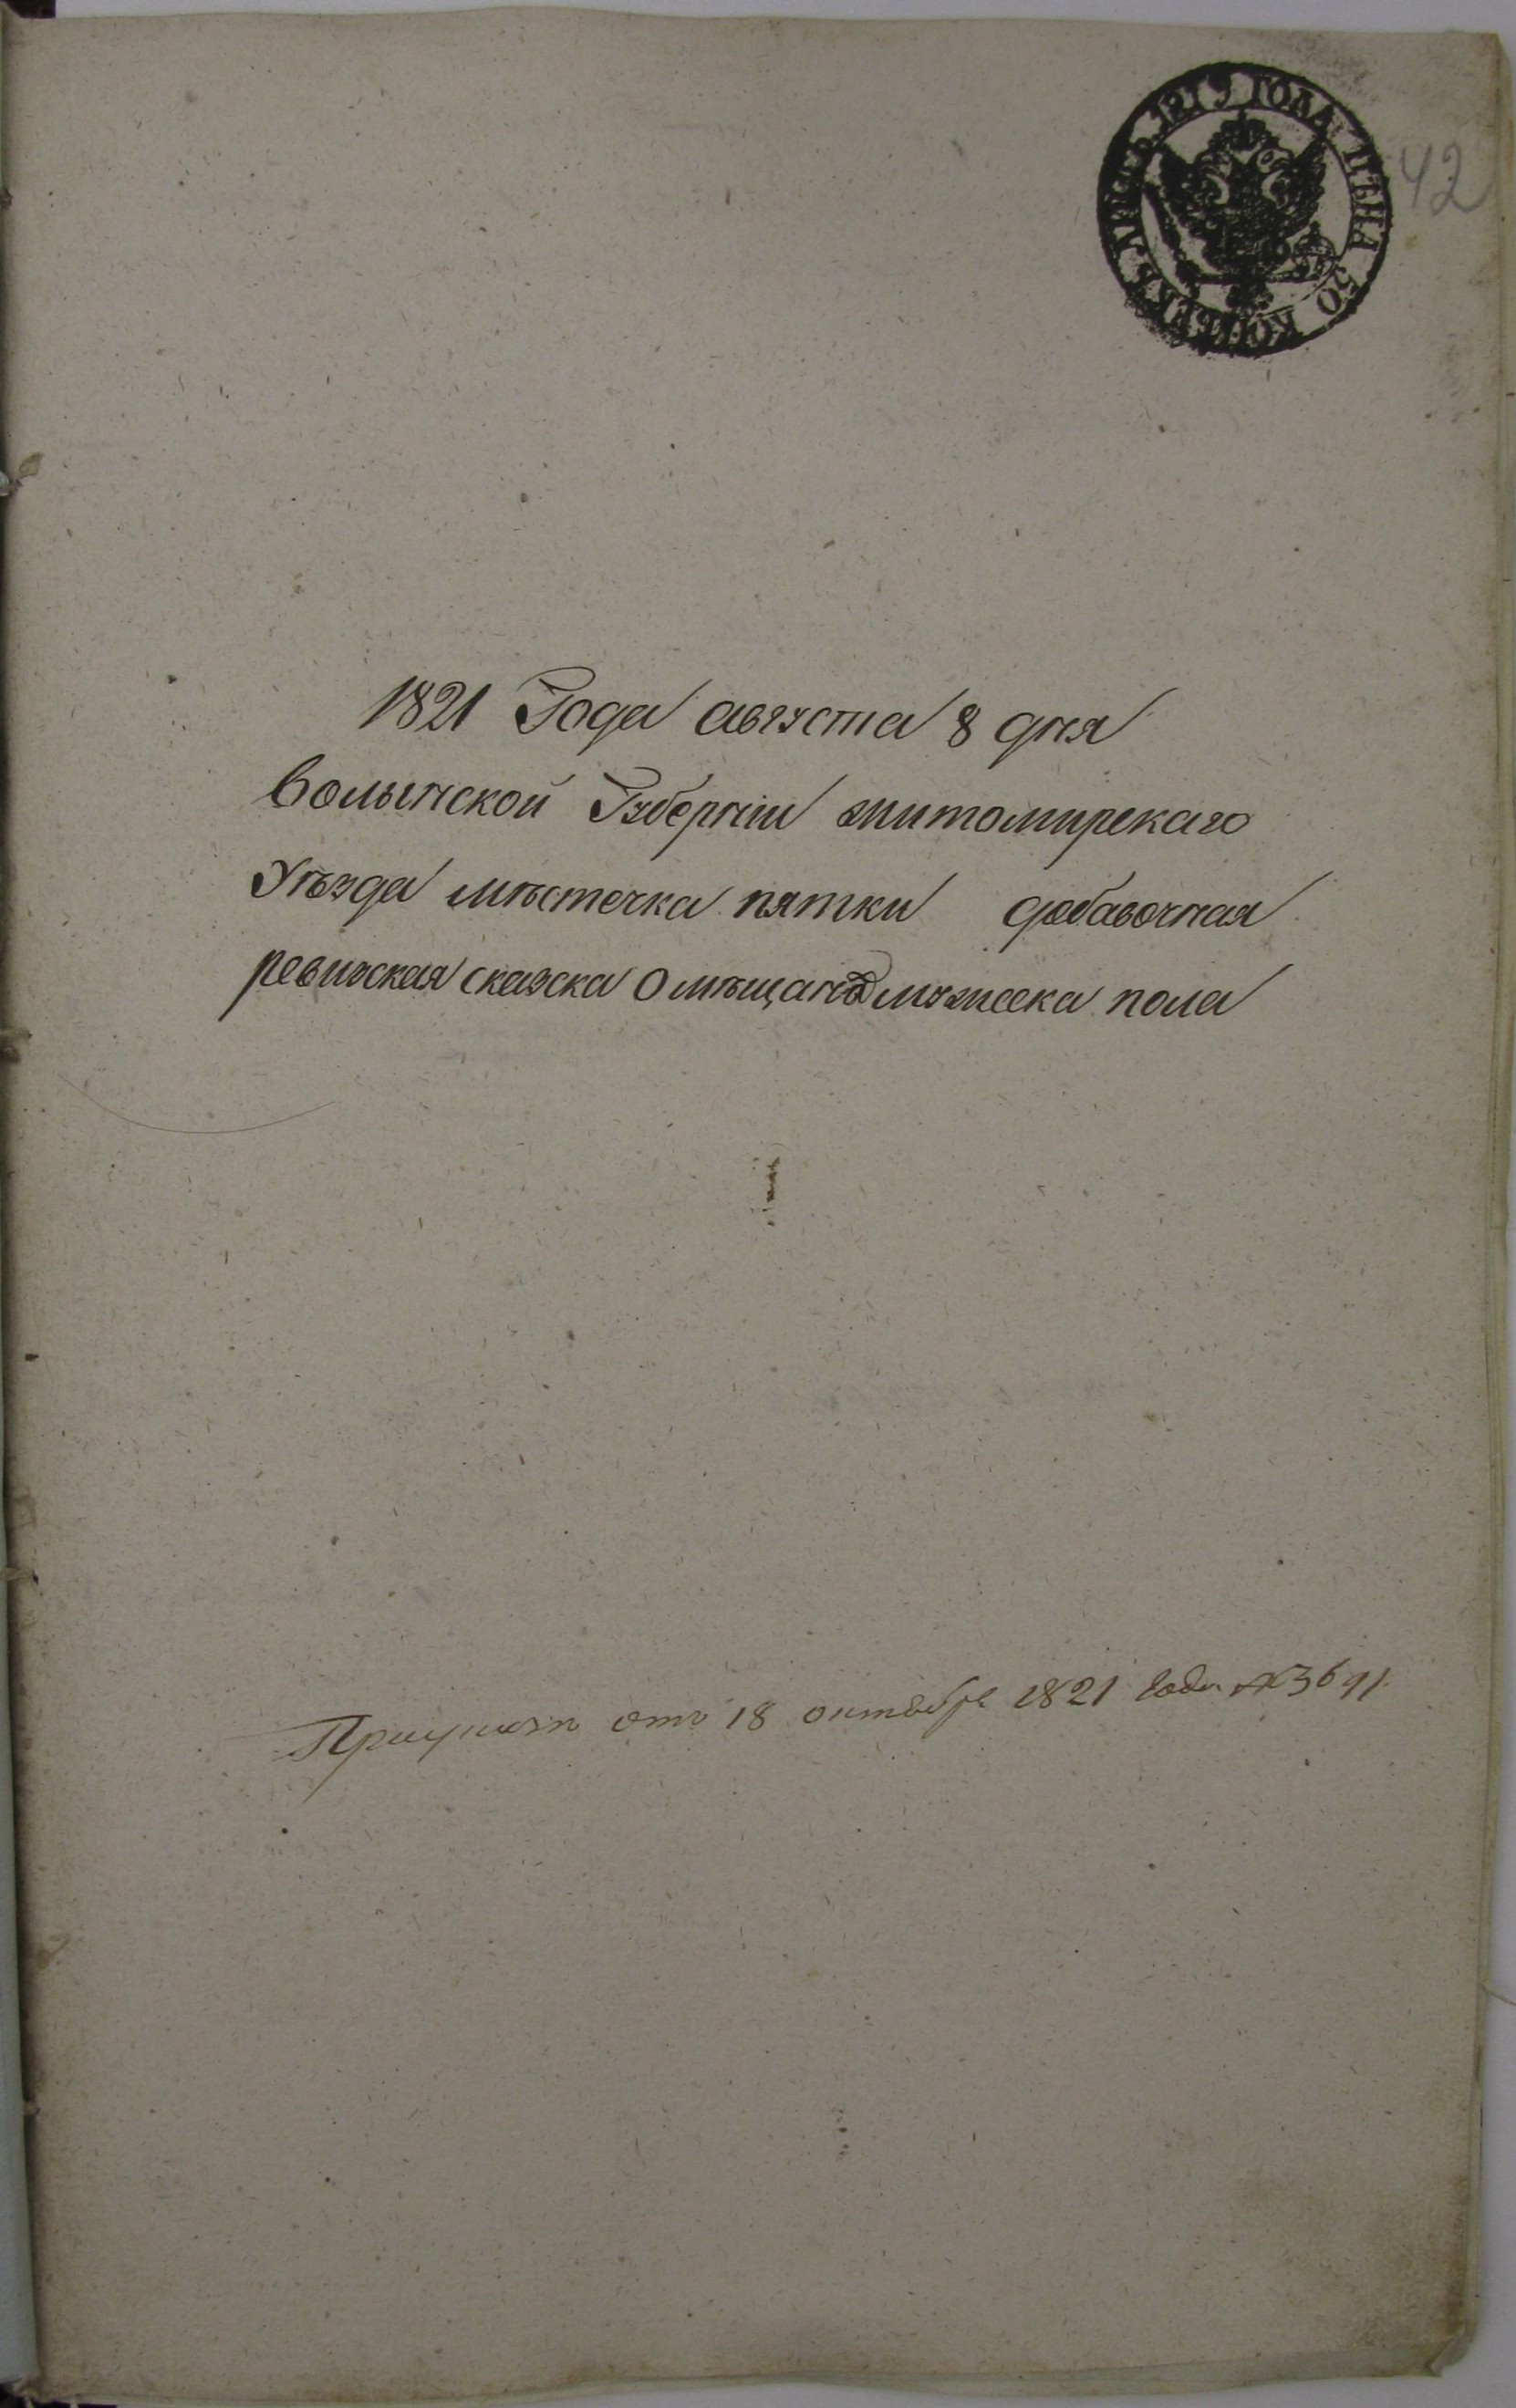 ЛИСТЪ 1819 ГОДА ЦѢНА 50 КОПѢЕКЪ
42
1821 Года августа 8 дня
волынской Губерніи житомирскаго
Уѣзда мѣстечка пятки добавочная
ревизская сказка О мѣщанахъ мужеска пола
При указѣ отъ 18 октября 1821 года №3691